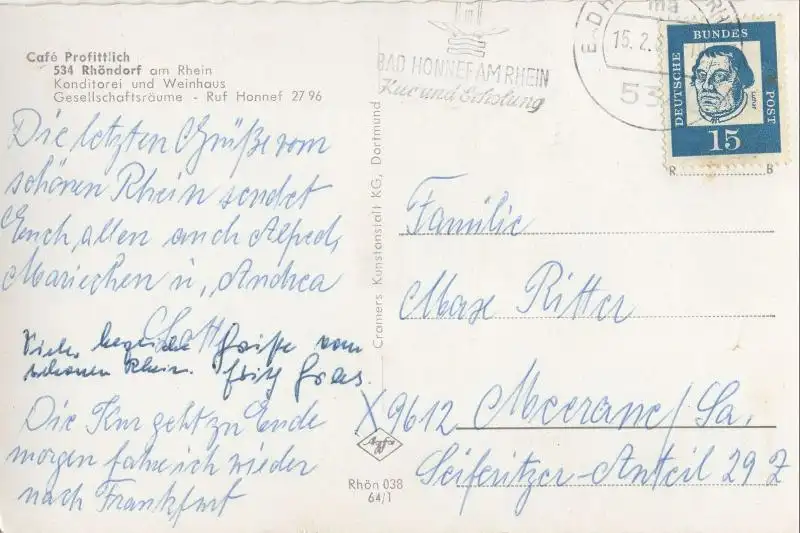 Café Profittlich
534 Rhöndorf am Rhein
Konditorei und Weinhaus
Gesellschaftsräume - Ruf Honnef 27 96
Die letzten Grüße vom
schönen Rhein sendet
Euch allen auch Alfred,
Mariechen u. Andrea
Viele herzliche Grüße vom
schönen Rhein. Fritz
Die Kur geht zu Ende
morgen fahre ich wieder
nach Frankfurt
Cramers Kunstanstalt KG, Dortmund
Agfa
Rhön 038
64/1
BAD HONNEF AM RHEIN
Kur und Erholung
15.2.
53
DEUTSCHE BUNDES POST
15
R B
Familie
Max Ritter
X 9612 Meerane/Sa.
Seiferitzer-Anteil 29 Z